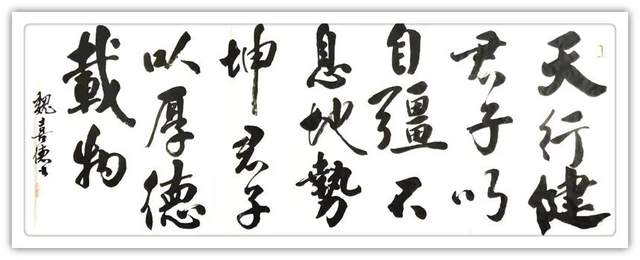 天行健
君子以
自彊不
息地勢
坤君子
以厚德
載物
魏喜德